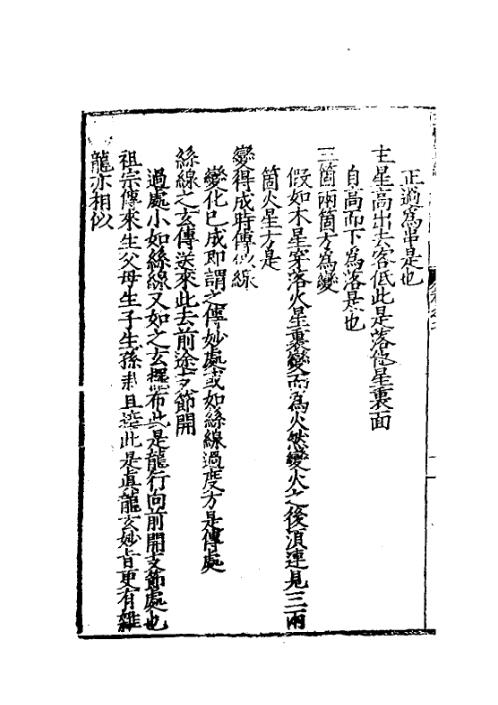 正過為串是也
主星高出去客低此是落他星裏面
自高而下為落是也
三箇兩箇方為變
假如木星穿落火星裏變而為火然變火之後須連見三兩
箇火星方是
變得成時傳似線
變化已成即謂之傳妙處或如絲線過度方是傳處
絲線之玄傳送來此去前途支節開
過處小如絲線又如之玄擺布此是龍行向前開支節處也
祖宗傳來生父母生子生孫 且 此是真龍玄妙 更有雜
龍亦相似